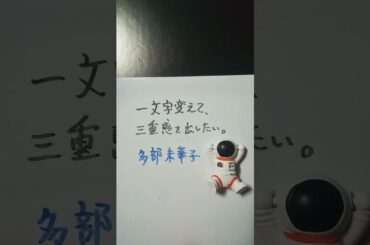 一文字変えて、
三重感を出したい。
多部未華子